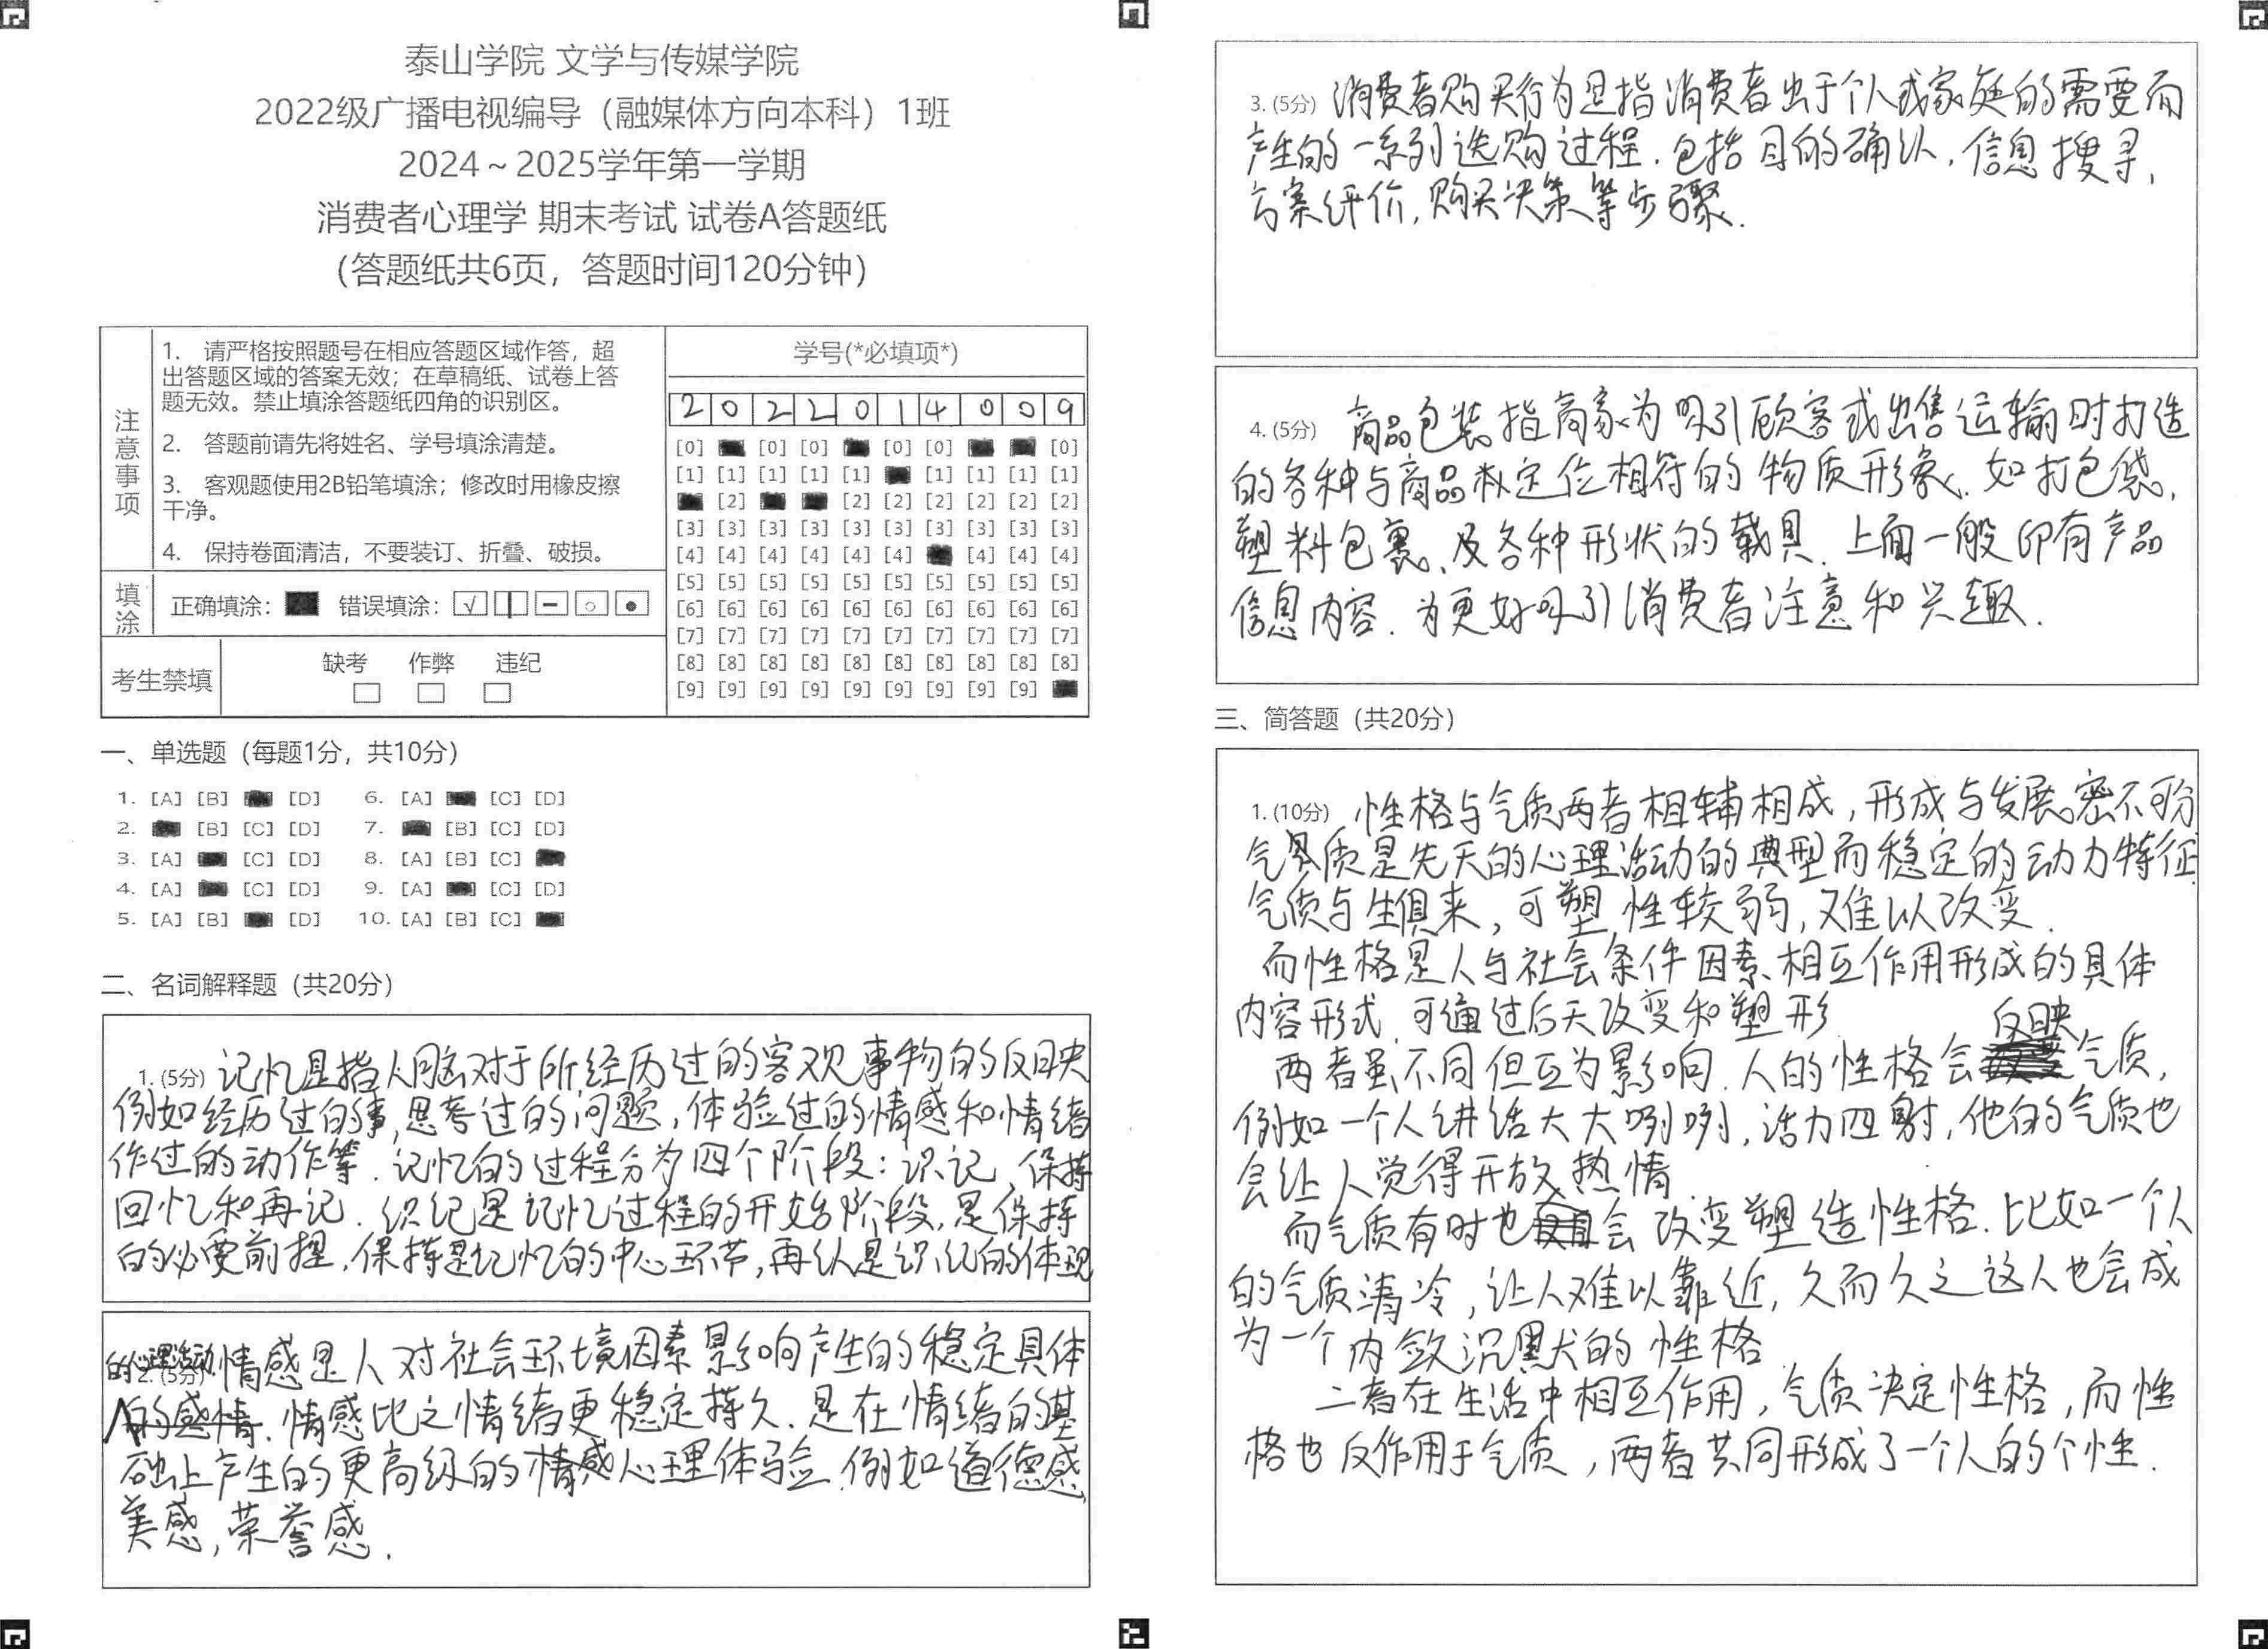 泰山学院 文学与传媒学院
2022级广播电视编导（融媒体方向本科）1班
2024～2025学年第一学期
消费者心理学 期末考试 试卷A答题纸
（答题纸共6页，答题时间120分钟）
注意事项
1. 请严格按照题号在相应答题区域作答，超
出答题区域的答案无效；在草稿纸、试卷上答
题无效。禁止填涂答题纸四角的识别区。
2. 答题前请先将姓名、学号填涂清楚。
3. 客观题使用2B铅笔填涂；修改时用橡皮擦
干净。
4. 保持卷面清洁，不要装订、折叠、破损。
填涂 正确填涂： 错误填涂：
考生禁填 缺考 作弊 违纪
学号(*必填项*)
2 0 2 2 0 1 4 0 0 9
[0] [0] [0] [0] [0] [0]
[1] [1] [1] [1] [1] [1] [1] [1] [1]
[2] [2] [2] [2] [2] [2] [2]
[3] [3] [3] [3] [3] [3] [3] [3] [3] [3]
[4] [4] [4] [4] [4] [4] [4] [4] [4]
[5] [5] [5] [5] [5] [5] [5] [5] [5] [5]
[6] [6] [6] [6] [6] [6] [6] [6] [6] [6]
[7] [7] [7] [7] [7] [7] [7] [7] [7] [7]
[8] [8] [8] [8] [8] [8] [8] [8] [8] [8]
[9] [9] [9] [9] [9] [9] [9] [9] [9]
一、单选题（每题1分，共10分）
1. [A] [B] [D] 6. [A] [C] [D]
2. [B] [C] [D] 7. [B] [C] [D]
3. [A] [C] [D] 8. [A] [B] [C]
4. [A] [C] [D] 9. [A] [C] [D]
5. [A] [B] [D] 10. [A] [B] [C]
二、名词解释题（共20分）
1. (5分) 记忆是指人脑对于所经历过的客观事物的反映
例如经历过的事,思考过的问题,体验过的情感和情绪
作过的动作等.记忆的过程分为四个阶段:识记、保持
回忆和再记.识记是记忆过程的开始阶段,是保持
的必要前提,保持是记忆的中心环节,再认是识记的体现
2. (5分) 情感是人对社会环境因素影响产生的稳定具体
的心理活动.情感比之情绪更稳定持久.是在情绪的基
础上产生的更高级的情感心理体验.例如道德感
美感,荣誉感.
3. (5分) 消费者购买行为是指消费者出于个人或家庭的需要而
产生的一系列选购过程.包括目的确认,信息搜寻,
方案评价,购买决策等步骤.
4. (5分) 商品包装指商家为吸引顾客或出售运输时打造
的各种与商品定位相符的物质形象.如打包袋,
塑料包裹、及各种形状的载具.上面一般印有产品
信息内容.为更好吸引消费者注意和兴趣.
三、简答题（共20分）
1. (10分) 性格与气质两者相辅相成,形成与发展密不可分
气质是先天的心理活动的典型而稳定的动力特征.
气质与生俱来,可塑性较弱,难以改变.
而性格是人与社会条件因素相互作用形成的具体
内容形式.可通过后天改变和塑形
两者虽不同但互为影响.人的性格会反映气质,
例如一个人讲话大大咧咧,活力四射,他的气质也
会让人觉得开放热情.
而气质有时也会改变塑造性格.比如一个人
的气质清冷,让人难以靠近,久而久之这人也会成
为一个内敛沉默的性格
二者在生活中相互作用,气质决定性格,而性
格也反作用于气质,两者共同形成了一个人的个性.